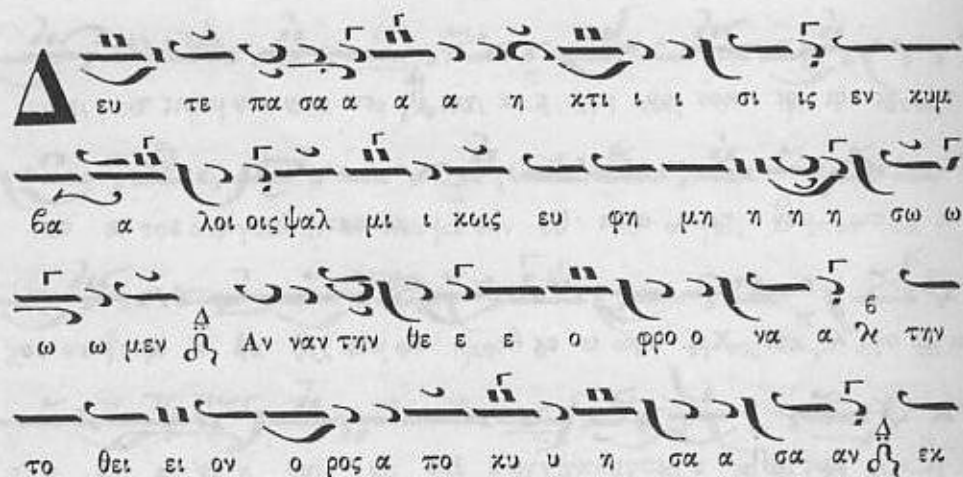 Δευ τε πα σα α α α η κτι ι ι σι ις εν κυμ
βα α λοι οις ψαλ μι ι κοις ευ φη μη η η η σω ω
ω ω μεν Δ Αν ναν την θε ε ε ο φρο ο να α β την
το θει ει ον ο ρος α πο κυ υ η σα α σα αν Δ εκ